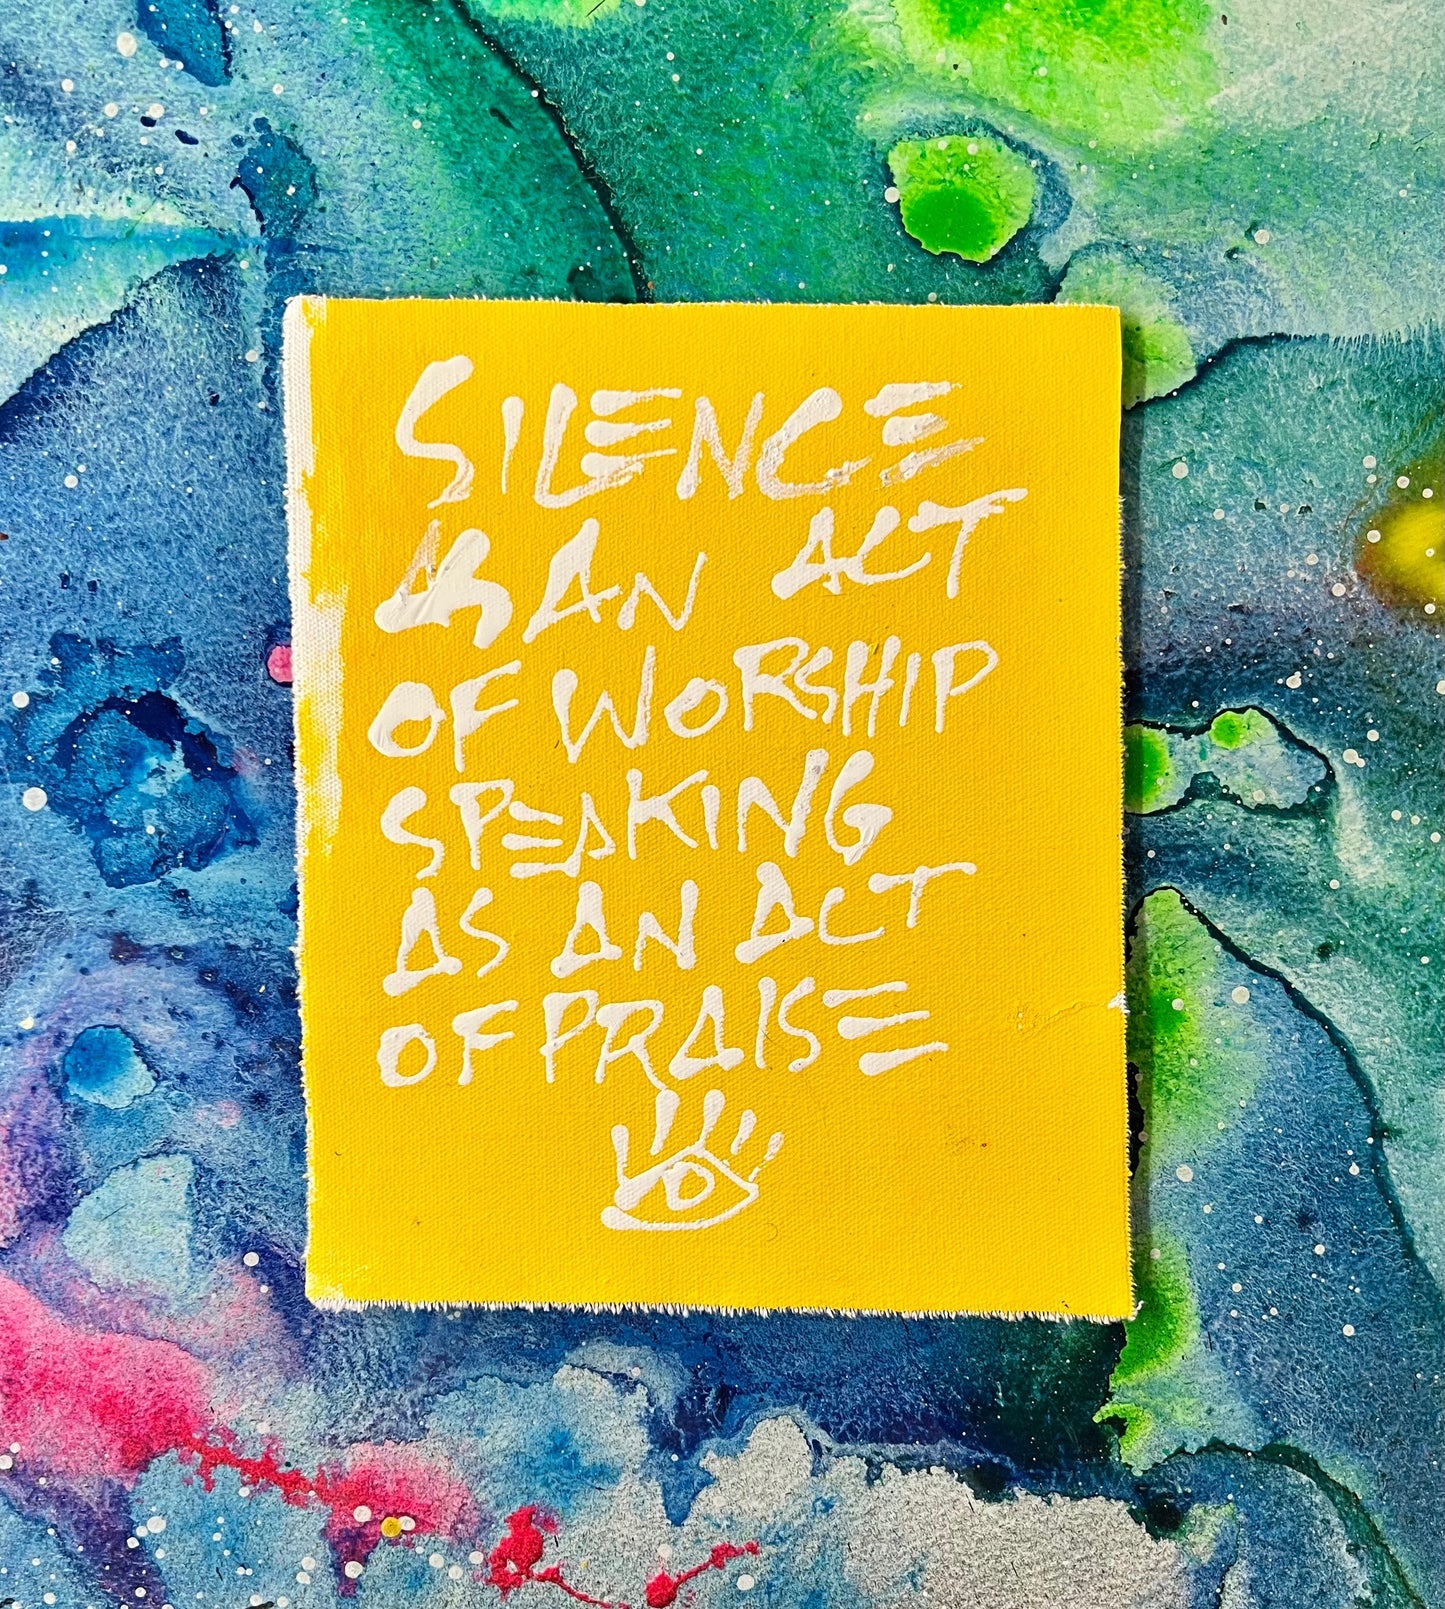 SILENCE
AS AN ACT
OF WORSHIP
SPEAKING
AS AN ACT
OF PRAISE